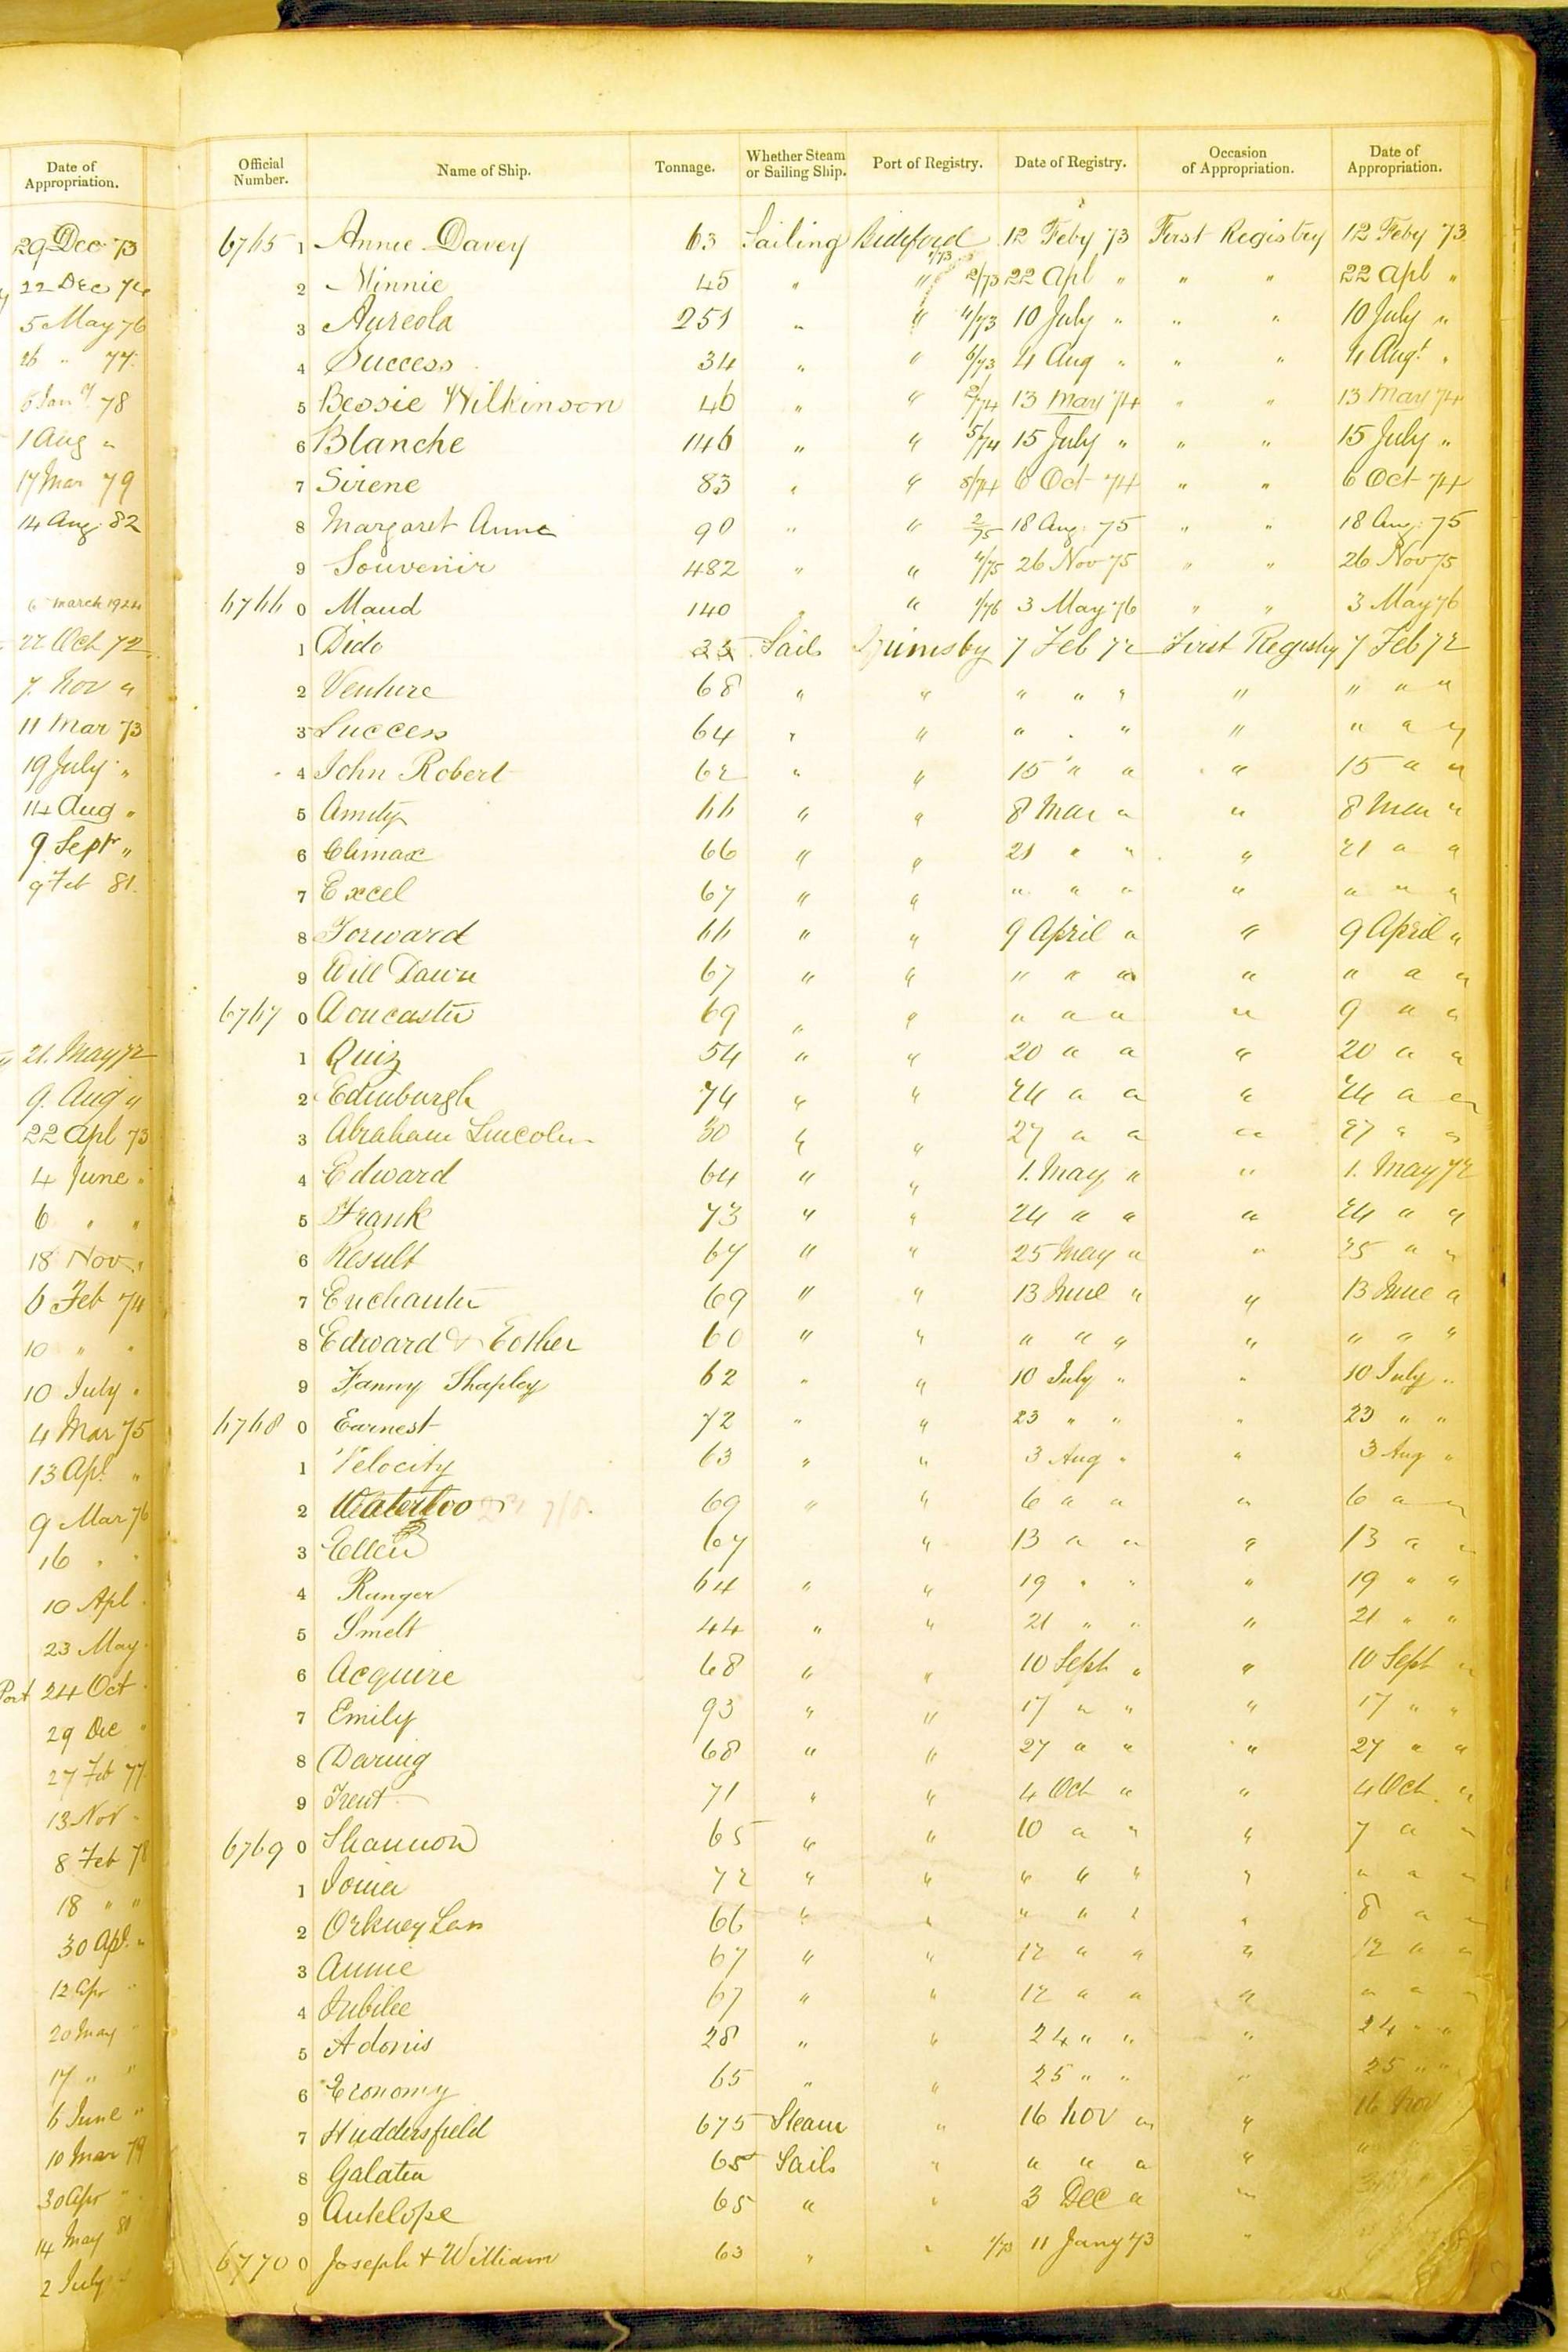 Date of Appropriation.
29 Dec 73
22 Dec 74
5 May 76
26 " 77
6 Jany 78
1 Aug "
17 Mar 79
14 Aug. 82
6 March 1924
22 Oct 72
7. Nov "
11 Mar 73
19 July "
14 Aug "
9 Sept "
9 Feb 81
21. May 72
9. Aug "
22 Apl 73
4 June "
6 " "
18 Nov "
6 Feb 74
10 " "
10 July "
4 Mar 75
13 Apl "
9 Mar 76
16 " "
10 Apl
23 May
Port 24 Oct
29 Dec "
27 Feb 77
13 Nov "
8 Feb 78
18 " "
30 Apl "
12 Apr "
20 May "
17 " "
6 June "
10 Mar 79
30 Apr "
14 May 80
2 July
Official Number. Name of Ship. Tonnage. Whether Steam or Sailing Ship. Port of Registry. Date of Registry. Occasion of Appropriation. Date of Appropriation.
6765 1 Annie Davey 63 Sailing Bideford 1/73 12 Feby 73 First Registry 12 Feby 73
2 Minnie 45 " " 2/73 22 Apl " " " 22 Apl "
3 Aureola 251 " " 4/73 10 July " " " 10 July "
4 Success 34 " " 6/73 4 Aug " " " 4 Augt "
5 Bessie Wilkinson 46 " " 2/74 13 May 74 " " 13 May 74
6 Blanche 146 " " 5/74 15 July " " " 15 July "
7 Sirene 83 " " 8/74 6 Oct 74 " " 6 Oct 74
8 Margaret Anne 90 " " 2/75 18 Aug. 75 " " 18 Aug. 75
9 Souvenir 482 " " 4/75 26 Nov 75 " " 26 Nov 75
6766 0 Maud 140 " " 1/76 3 May 76 " " 3 May 76
1 Dido Sails Grimsby 7 Feb 72 First Registry 7 Feb 72
2 Venture 68 " " " " " " " " "
3 Success 64 " " " " " " " " "
4 John Robert 62 " " 15 " " " 15 " "
5 Amity 66 " " 8 Mar " " 8 Mar "
6 Climax 66 " " 21 " " " 21 " "
7 Excel 67 " " " " " " " " "
8 Forward 66 " " 9 April " " 9 April "
9 Will Dawn 67 " " " " " " " " "
6767 0 Doncaster 69 " " " " " " 9 " "
1 Quiz 54 " " 20 " " " 20 " "
2 Edinburgh 74 " " 24 " " " 24 " "
3 Abraham Lincoln 50 " " 27 " " " 27 " "
4 Edward 64 " " 1. May " " 1. May 72
5 Frank 73 " " 24 " " " 24 " "
6 Result 67 " " 25 May " " 25 " "
7 Enchanter 69 " " 13 June " " 13 June "
8 Edward & Esther 60 " " " " " " " " "
9 Fanny Shapley 62 " " 10 July " " 10 July "
6768 0 Earnest 72 " " 23 " " " 23 " "
1 Velocity 63 " " 3 Aug " " 3 Aug "
2 Waterloo 69 " " 6 " " " 6 " "
3 Ellen 67 " 13 " " " 13 " "
4 Ranger 64 " " 19 " " " 19 " "
5 Smelt 44 " " 21 " " " 21 " "
6 Acquire 68 " " 10 Sept " " 10 Sept "
7 Emily 93 " " 17 " " " 17 " "
8 Daring 68 " " 27 " " " 27 " "
9 Trent 71 " " 4 Oct " " 4 Oct "
6769 0 Shannon 65 " " 10 " " " 7 " "
1 Iona 72 " " " " " " " " "
2 Orkney Lass 66 " " " " " " 8 " "
3 Annie 67 " " 12 " " " 12 " "
4 Jubilee 67 " " 12 " " " " " "
5 Adonis 28 " " 24 " " " 24 " "
6 Economy 65 " " 25 " " " 25 " "
7 Huddersfield 675 Steam " 16 Nov " " 16 Nov
8 Galatea 65 Sails " " " " " "
9 Antelope 65 " " 3 Dec " "
6770 0 Joseph & William 63 " " 1/73 11 Jany 73 "